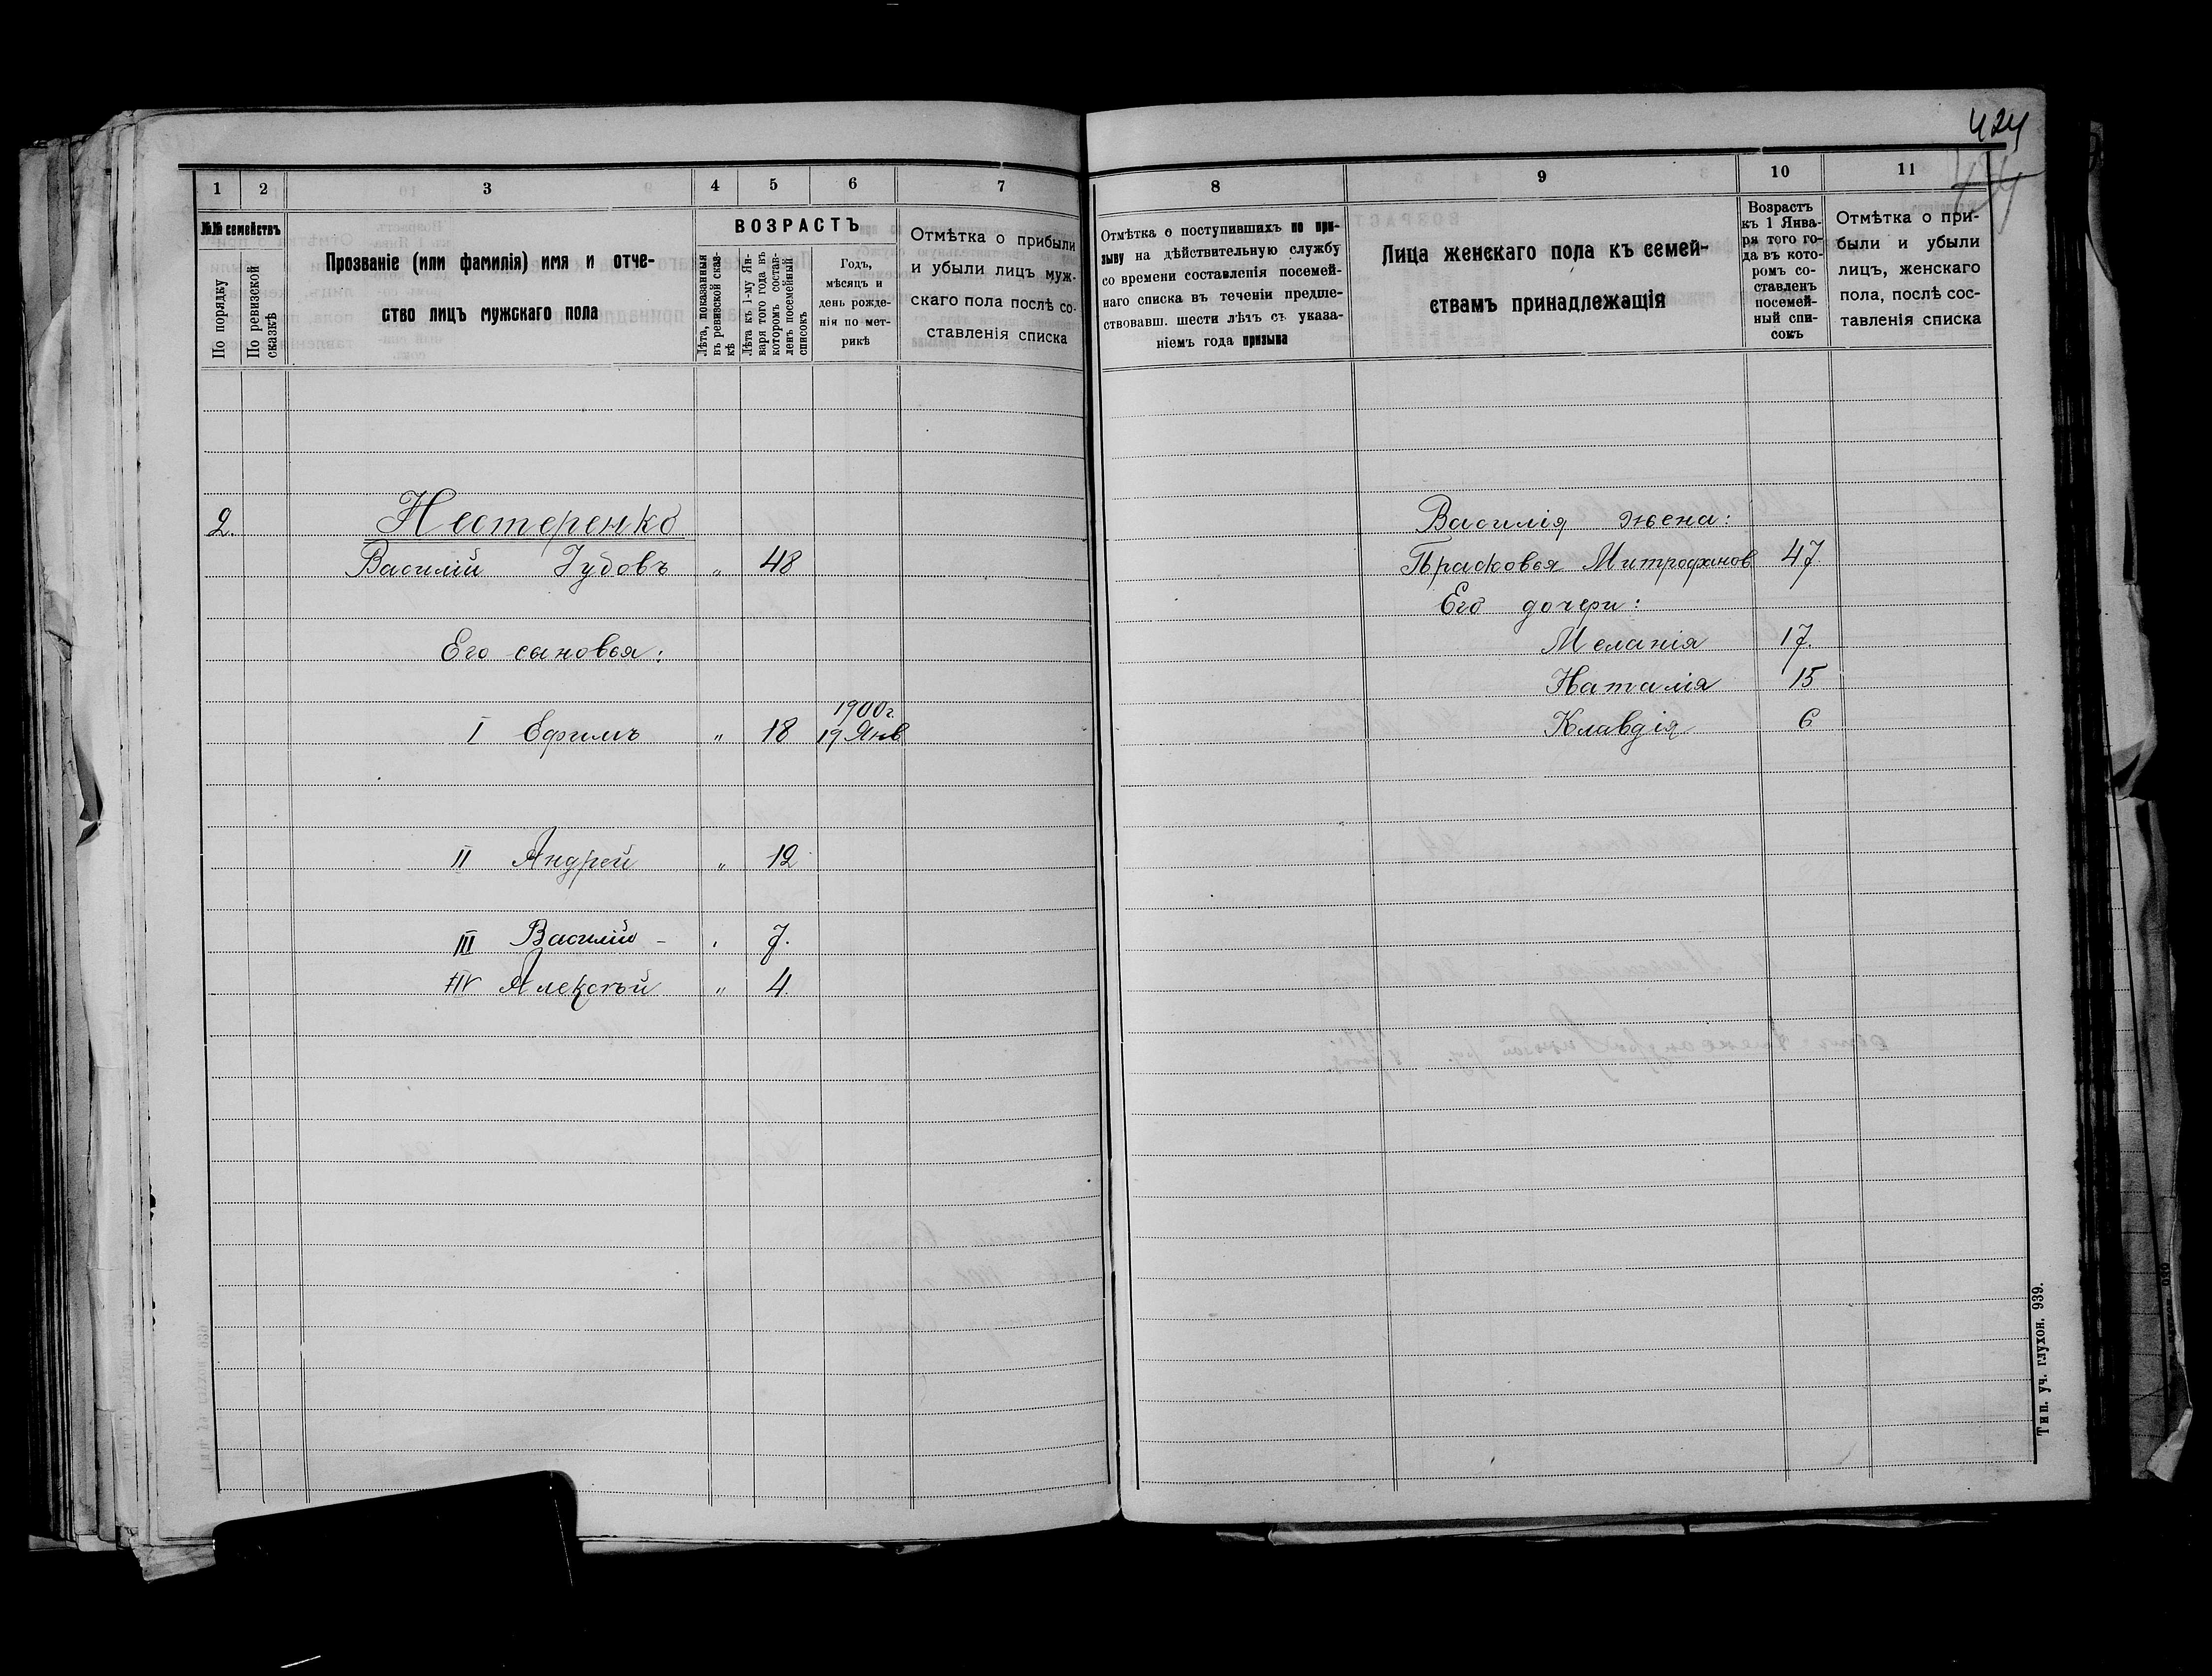 424
1 2 3 4 5 6 7
№№ семействъ
По порядку
По ревизской сказкѣ
Прозваніе (или фамилія) имя и отче-
ство лицъ мужскаго пола
ВОЗРАСТЪ
Лѣта, показанныя
въ ревизской сказ-
кѣ
Лѣта къ 1-му Ян-
варя того года въ
которомъ состав-
ленъ посемейный
списокъ
Годъ,
мѣсяцъ и
день рожде-
нія по мет-
рикѣ
Отмѣтка о прибыли
и убыли лицъ муж-
скаго пола послѣ со-
ставленія списка
2. Нестеренко
Василій Губовъ „ 48
Его сыновья:
I Ефимъ „ 18 1900г.
19 Янв
II Андрей „ 12
III Василій - „ 7.
IV Алексѣй „ 4.
8 9 10 11
Отмѣтка о поступившихъ по при-
зыву на дѣйствительную службу
со времени составленія посемей-
наго списка въ теченіи предше-
ствовавш. шести лѣтъ съ указа-
ніемъ года призыва
Лица женскаго пола къ семей-
ствамъ принадлежащія
Возрастъ
къ 1 Янва-
ря того го-
да въ кото-
ромъ со-
ставленъ
посемей-
ный спи-
сокъ
Отмѣтка о при-
были и убыли
лицъ, женскаго
пола, послѣ сос-
тавленія списка
Василія жена:
Прасковья Митрофанов 47
Его дочери:
Меланія 17.
Наталія 15
Клавдія 6
Тип. уч. глухон. 939.